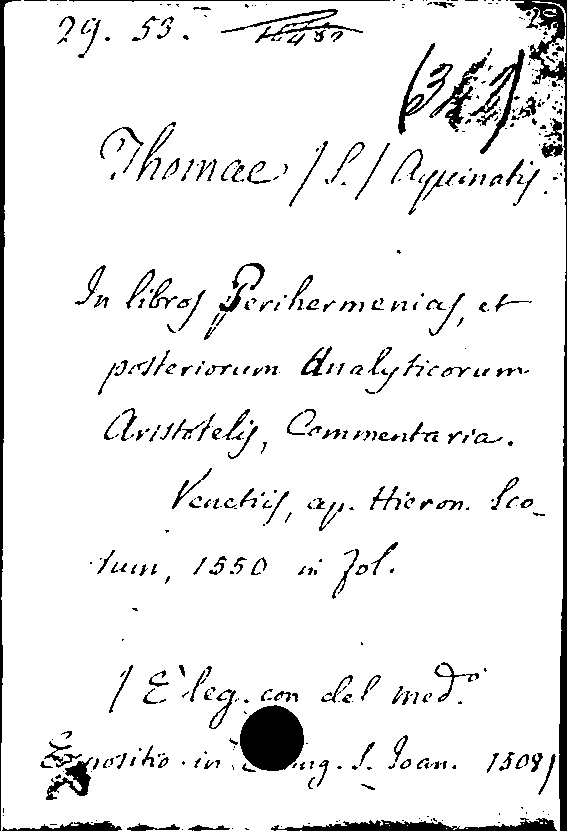 29. 53.
Thomae /S./ Aquinatis.
In libros Perihermenias, et
posteriorum Analyticorum
Aristotelis, Commentaria.
Venetiis, ap. Hieron. Sco-
tum, 1550 in fol.
/ È leg. con del med.º
Expositio in Evang. S. Joan. 1508/